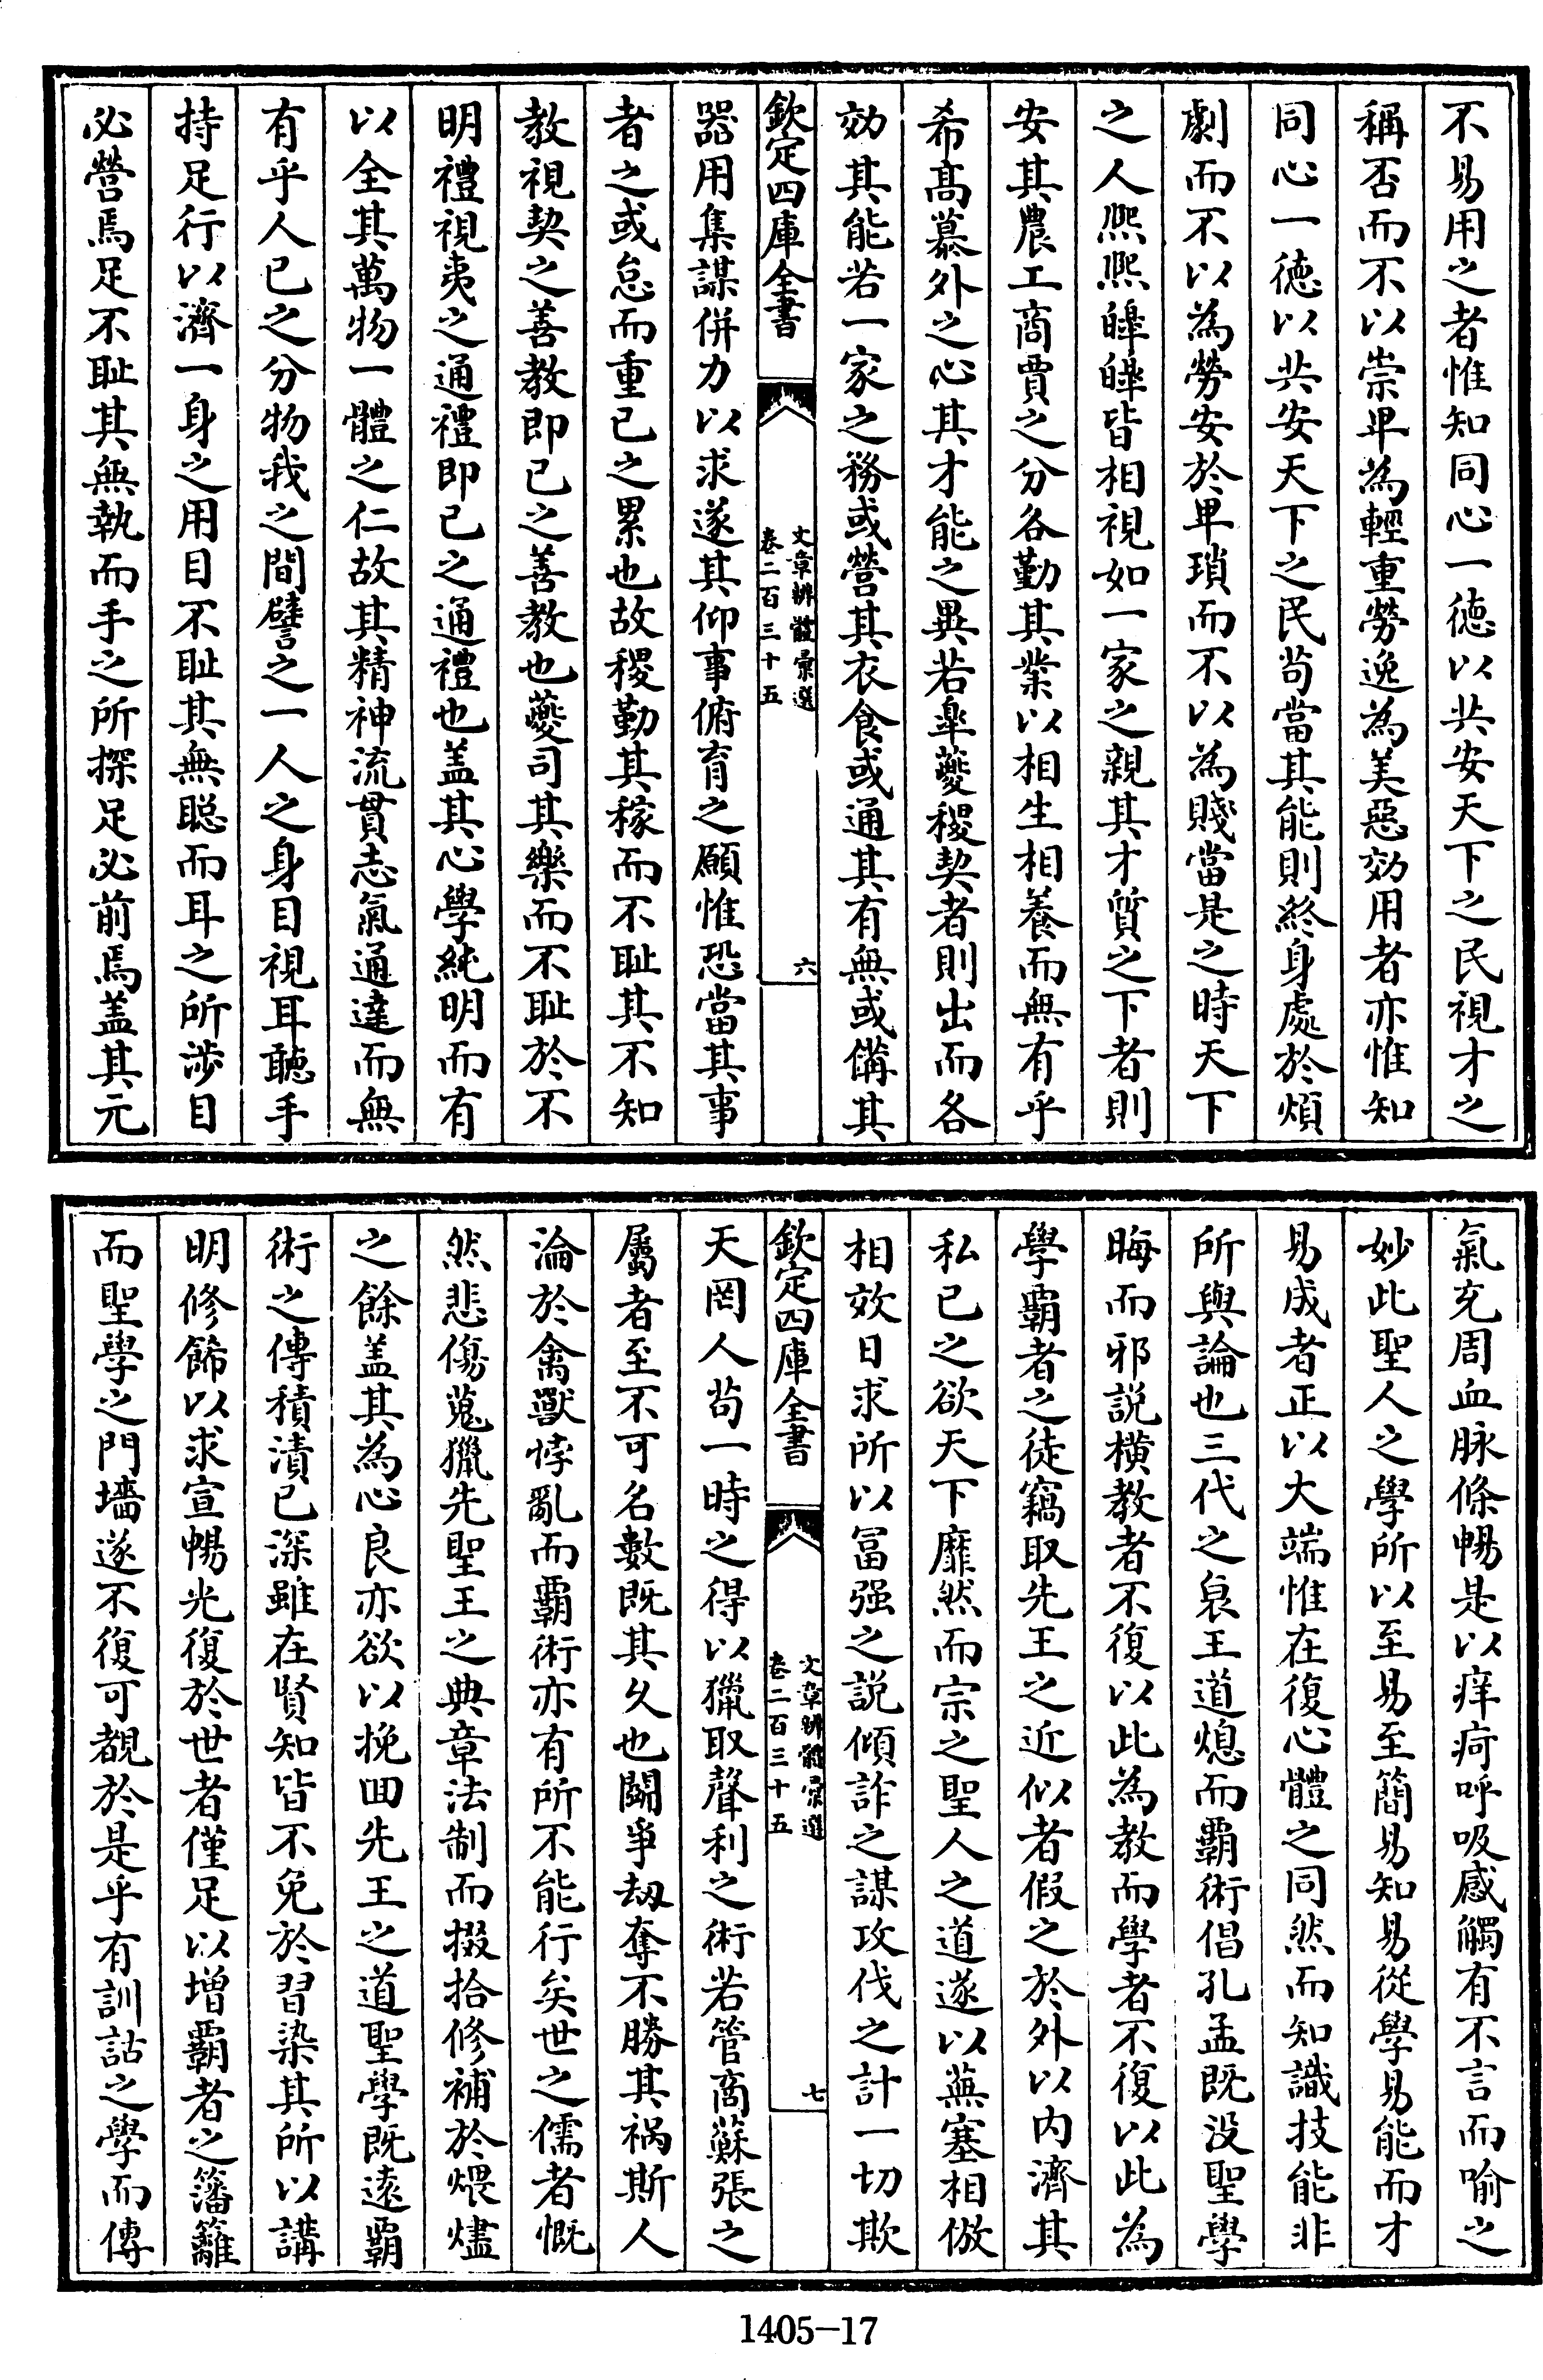 不易用之者惟知同心一徳以共安天下之民視才之
稱否而不以崇卑為輕重勞逸為美惡効用者亦惟知
同心一徳以共安天下之民茍當其能則終身處於煩
劇而不以為勞安於卑瑣而不以為賤當是之時天下
之人熈熈皡皡皆相視如一家之親其才質之下者則
安其農工商賈之分各勤其業以相生相養而無有乎
希髙慕外之心其才能之異若臯夔稷契者則出而各
効其能若一家之務或營其衣食或通其有無或備其
欽定四庫全書
文章辨體彙選
卷二百三十五
六
器用集謀併力以求遂其仰事俯育之願惟恐當其事
者之或怠而重已之累也故稷勤其稼而不耻其不知
教視契之善教即已之善教也夔司其樂而不耻於不
明禮視夷之通禮即已之通禮也盖其心學純明而有
以全其萬物一體之仁故其精神流貫志氣通達而無
有乎人已之分物我之間譬之一人之身目視耳聽手
持足行以濟一身之用目不耻其無聰而耳之所涉目
必營焉足不耻其無執而手之所探足必前焉盖其元
氣充周血脉條暢是以痒疴呼吸感觸有不言而喻之
妙此聖人之學所以至易至簡易知易從學易能而才
易成者正以大端惟在復心體之同然而知識技能非
所與論也三代之衰王道熄而覇術倡孔孟既没聖學
晦而邪説横教者不復以此為教而學者不復以此為
學覇者之徒竊取先王之近似者假之於外以内濟其
私已之欲天下靡然而宗之聖人之道遂以蕪塞相倣
相效日求所以冨强之説傾詐之謀攻伐之計一切欺
欽定四庫全書
文章辨體彙選
卷二百三十五
七
天罔人茍一時之得以獵取聲利之術若管商蘇張之
屬者至不可名數既其乆也鬬爭刼奪不勝其禍斯人
淪於禽獸悖亂而覇術亦有所不能行矣世之儒者慨
然悲傷蒐獵先聖王之典章法制而掇拾修補於煨燼
之餘盖其為心良亦欲以挽囬先王之道聖學既逺覇
術之傳積漬已深雖在賢知皆不免於習染其所以講
明修飾以求宣暢光復於世者僅足以增覇者之籓籬
而聖學之門墻遂不復可覩於是乎有訓詁之學而傳
1405-17